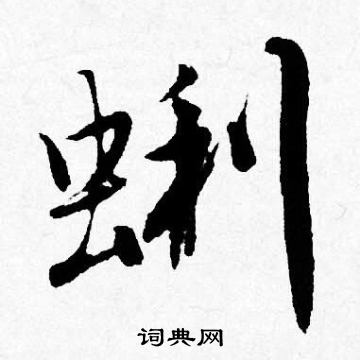 蜊
词典网